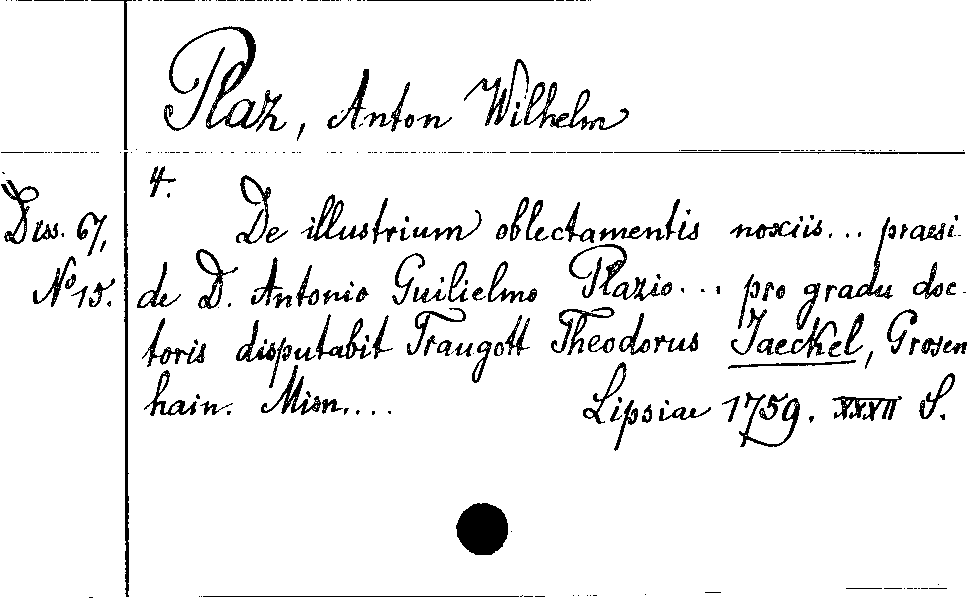 Plaz, Anton Wilhelm
4.
Diss. 67,
No 15.
De illustrium oblectamentis noxiis... praesi
de D. Antonio Guilielmo Plazio... pro gradu doc
toris disputabit Traugott Theodorus Jaeckel, Grosen
hain. Misn....
Lipsiae 1759. XXXII S.